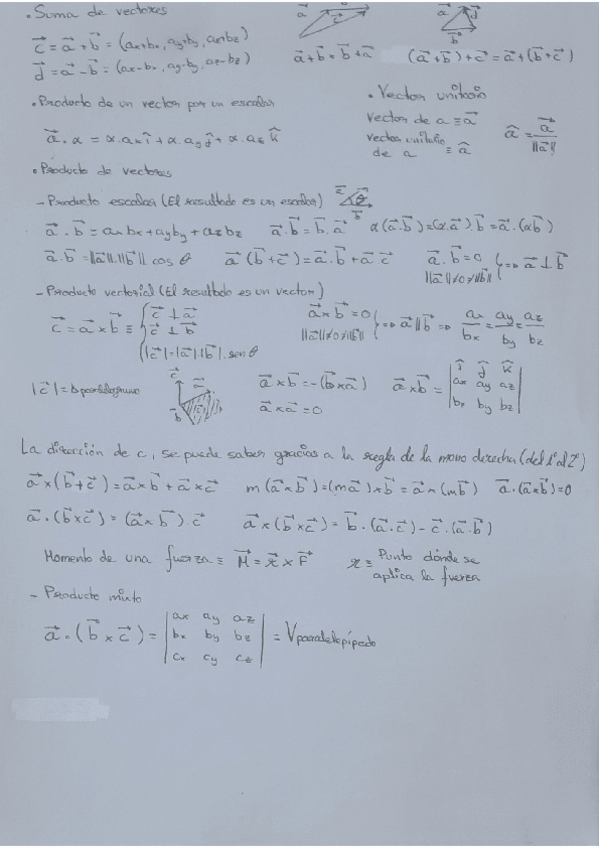 • Suma de vectores
c⃗ = a⃗ + b⃗ = (ax+bx, ay+by, az+bz)
d⃗ = a⃗ - b⃗ = (ax-bx, ay-by, az-bz)
a⃗ c⃗
a⃗ d⃗ b⃗
a⃗+b⃗ = b⃗+a⃗ (a⃗+b⃗)+c⃗ = a⃗+(b⃗+c⃗)
• Producto de un vector por un escalar
a⃗ · α = α·ax î + α·ay ĵ + α·az k̂
• Vector unitario
vector de a ≡ a⃗
vector unitario de a ≡ â
â = a⃗ / ||a⃗||
• Producto de vectores
- Producto escalar (El resultado es un escalar) a⃗ θ b⃗
a⃗ · b⃗ = axbx + ayby + azbz a⃗·b⃗ = b⃗·a⃗ α(a⃗·b⃗) = (α·a⃗)·b⃗ = a⃗·(αb⃗)
a⃗·b⃗ = ||a⃗||·||b⃗|| cos θ a⃗ (b⃗+c⃗) = a⃗·b⃗ + a⃗ c⃗ a⃗·b⃗=0 ||a⃗||≠0≠||b⃗|| } ⇔ a⃗ ⊥ b⃗
- Producto vectorial (El resultado es un vector)
c⃗ = a⃗ × b⃗ ≡ { c⃗ ⊥ a⃗
c⃗ ⊥ b⃗
|c⃗| = |a⃗|·|b⃗|·sen θ
a⃗×b⃗=0 ||a⃗||≠0≠||b⃗|| } ⇔ a⃗ || b⃗ ⇒ ax/bx = ay/by = az/bz
|c⃗| = paralelogramo c⃗ b⃗
a⃗×b⃗ = -(b⃗×a⃗)
a⃗×a⃗ = 0
a⃗×b⃗ = | î ĵ k̂
ax ay az
bx by bz |
La dirección de c, se puede saber gracias a la regla de la mano derecha (del 1º al 2º)
a⃗×(b⃗+c⃗) = a⃗×b⃗ + a⃗×c⃗ m(a⃗×b⃗) = (ma⃗)×b⃗ = a⃗×(mb⃗) a⃗·(a⃗×b⃗)=0
a⃗·(b⃗×c⃗) = (a⃗×b⃗)·c⃗ a⃗×(b⃗×c⃗) = b⃗·(a⃗·c⃗) - c⃗·(a⃗·b⃗)
Momento de una fuerza ≡ M⃗ = r⃗ × F⃗ r ≡ Punto dónde se
aplica la fuerza
- Producto mixto
a⃗ · (b⃗ × c⃗) = | ax ay az
bx by bz
cx cy cz | = Vparalelepípedo